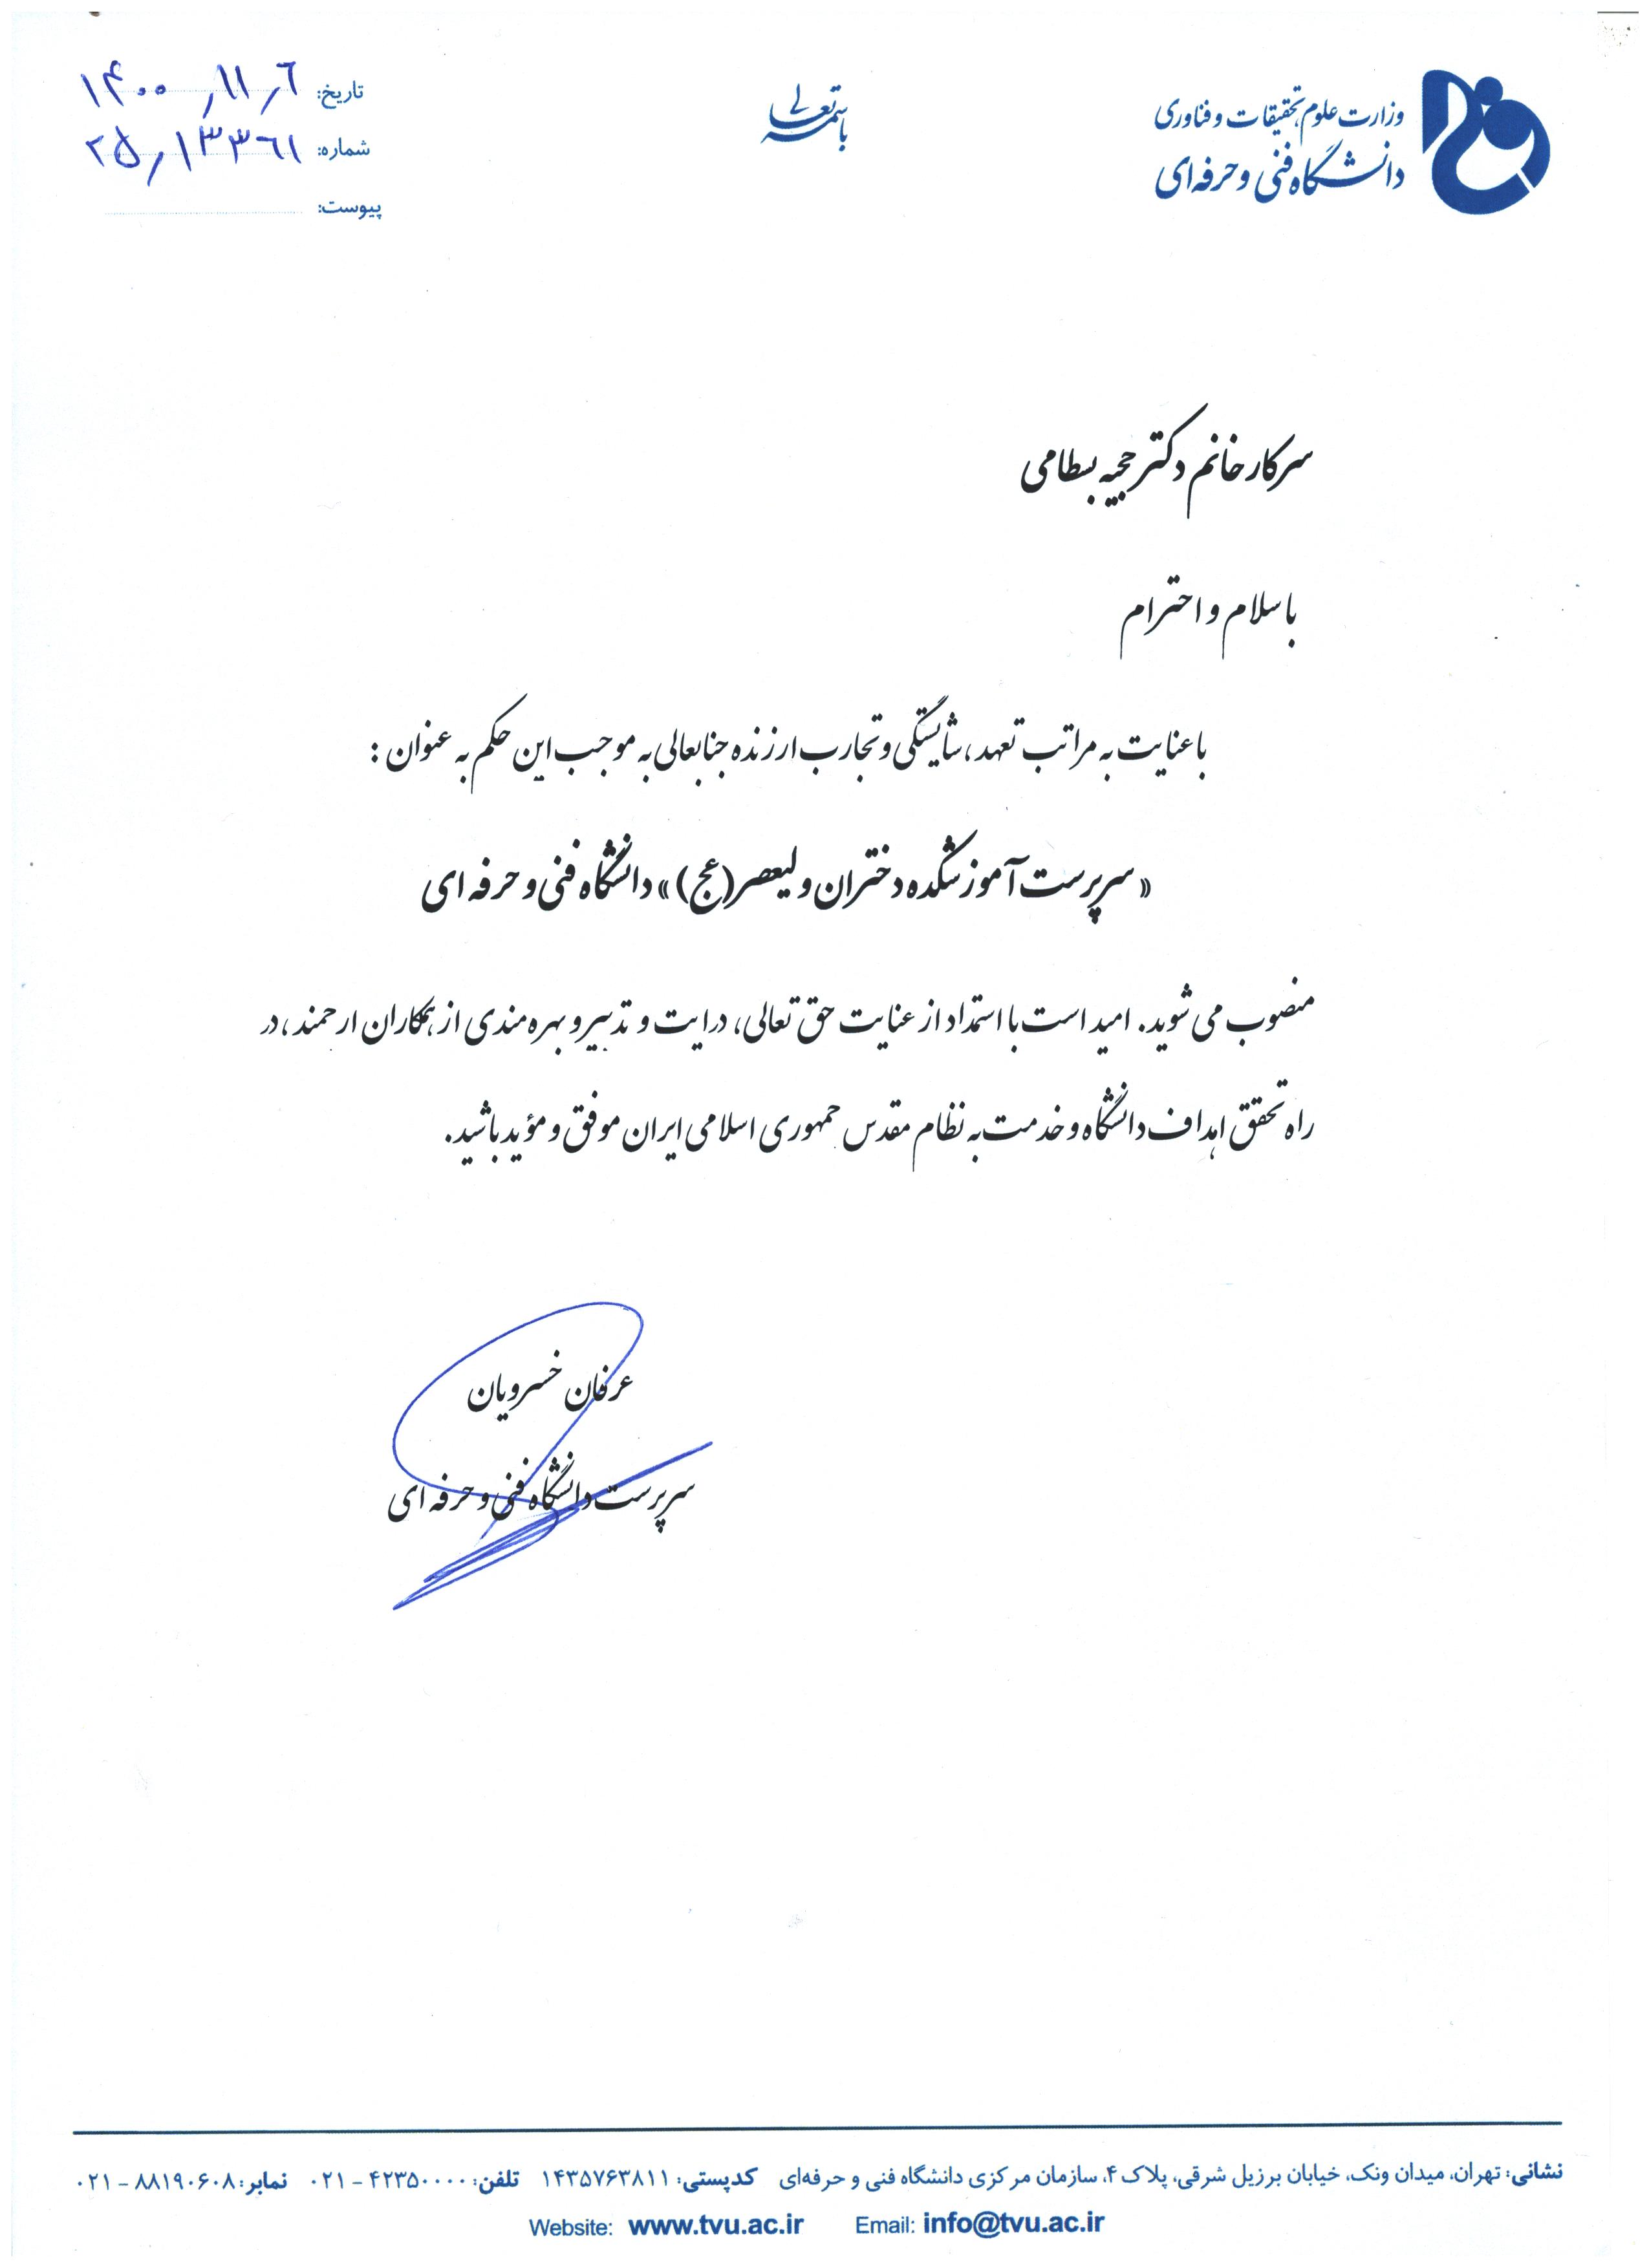 وزارت علوم تحقیقات و فناوری
دانشگاه فنی و حرفه‌ای
باسمه تعالی
تاریخ: ۱۴۰۰/۱۱/۶
شماره: ۲۵/۱۳۳۶۱
پیوست:
سرکار خانم دکتر حجیه بسطامی
با سلام و احترام
با عنایت به مراتب تعهد، شایستگی و تجارب ارزنده جنابعالی به موجب این حکم به عنوان :
«سرپرست آموزشکده دختران ولیعصر(عج)» دانشگاه فنی و حرفه ای
منصوب می شوید. امید است با استمداد از عنایت حق تعالی، درایت و تدبیر و بهره مندی از همکاران ارجمند، در
راه تحقق اهداف دانشگاه و خدمت به نظام مقدس جمهوری اسلامی ایران موفق و مؤید باشید.
عرفان خسرویان
سرپرست دانشگاه فنی و حرفه ای
نشانی: تهران، میدان ونک، خیابان برزیل شرقی، پلاک ۴، سازمان مرکزی دانشگاه فنی و حرفه‌ای کدپستی: ۱۴۳۵۷۶۳۸۱۱ تلفن: ۴۲۳۵۰۰۰۰ – ۰۲۱ نمابر: ۸۸۱۹۰۶۰۸ – ۰۲۱
Website: www.tvu.ac.ir Email: info@tvu.ac.ir